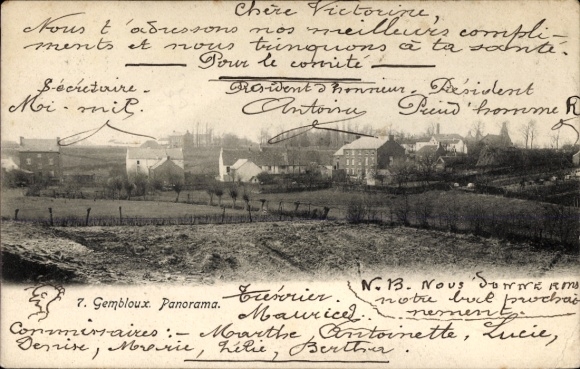 Chère Victorine,
Nous t'adressons nos meilleurs compli-
ments et nous trinquons à ta santé.
Pour le comité
Sécrétaire. Président d'honneur. Président
Mi-mil. Antoine Prud'homme R
7. Gembloux. Panorama.
N.B. Nous donnerons
notre bal prochai-
nement.
Trésorier.
Maurice.
Commissaires :- Marthe, Antoinette, Lucie,
Denise, Marie, Zélie, Bertha.